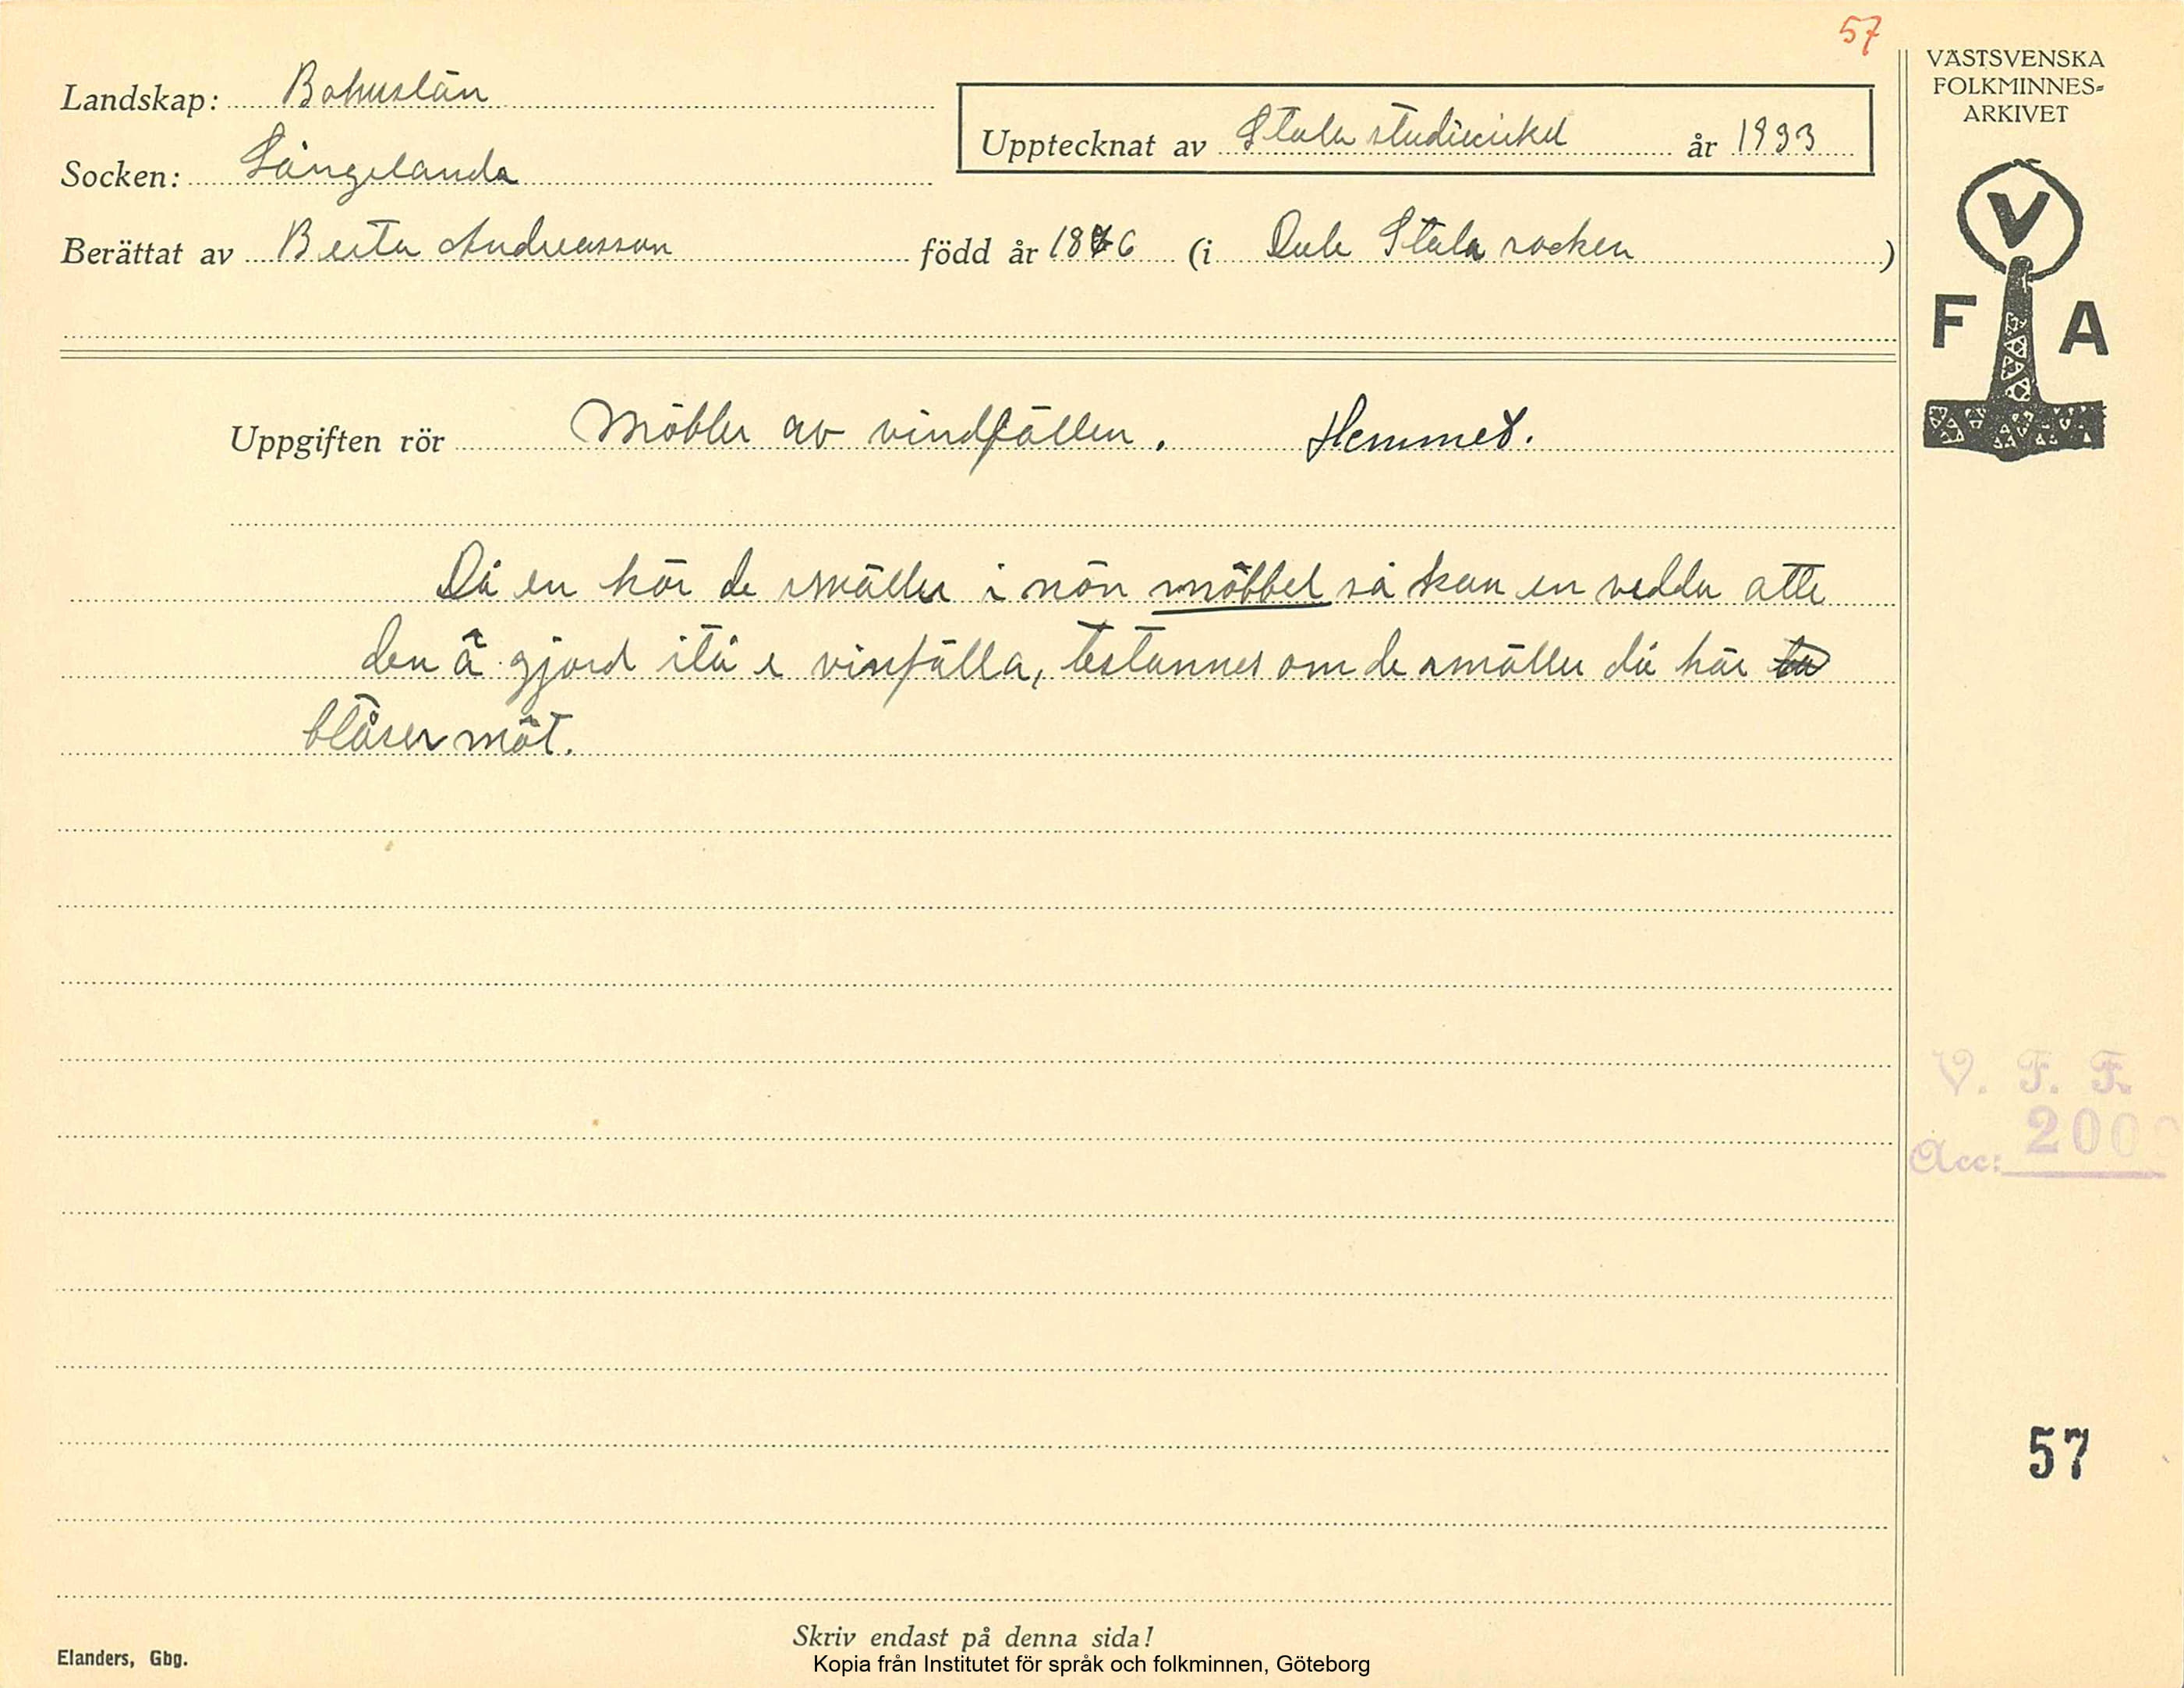 57
VÄSTSVENSKA
FOLKMINNES=
ARKIVET
Landskap: Bohuslän
Upptecknat av Stala studiecirkel år 1933
Socken: Långelanda
Berättat av Berta Andreasson född år 1876 (i Dale Stala socken)
V
F A
Uppgiften rör Möbler av vindfällen. Hemmet.
Då en hör de smäller i nôn möbbel så kan en vedda atte
den ä gjord itå e vinfälla, testannes om de smäller då här
blåser môt.
V. F. F.
Acc: 200
57
Skriv endast på denna sida!
Elanders, Gbg.
Kopia från Institutet för språk och folkminnen, Göteborg